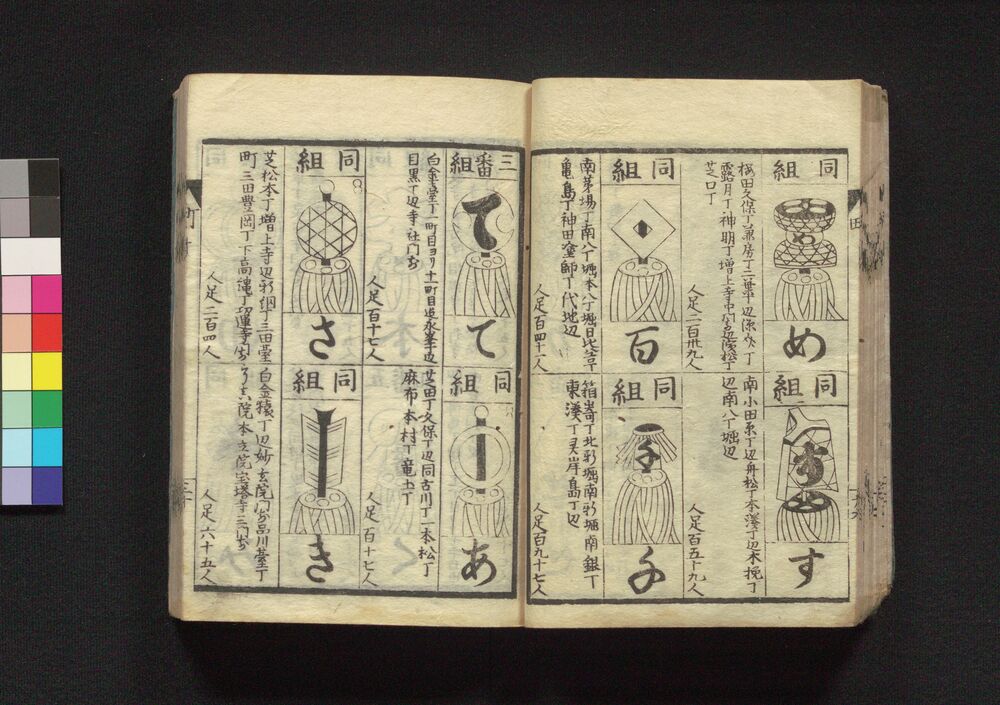 同組
め
桜田久保丁兼房丁二葉丁辺源介丁
露月丁神明丁増上寺中門前辺濱松丁
芝口丁
人足二百卅九人
同組
す
す
南小田原丁辺舟松丁本湊丁辺木挽丁
辺南八丁堀辺
人足百五十九人
同組
百
南茅場丁南八丁堀本八丁堀日比谷丁
亀島丁神田塗師丁代地辺
人足百四十一人
同組
千
千
箱崎丁北新堀南新堀南銀丁
東湊丁灵岸島丁辺
人足百九十七人
三番組
て
て
白金台丁一町目ヨリ十一町目迠永峯丁辺
目黒丁辺寺社門前
人足百十七人
組
あ
芝田丁久保丁辺同古川丁一本松丁
麻布本村丁竜土丁
人足百十七人
同組
さ
芝松本丁増上寺辺新網丁三田臺
町三田豊岡丁下高縄丁
人足二百四人
同組
き
白金猿丁辺妙玄院門前品川臺丁
本立院宝塔寺門前
人足六十五人